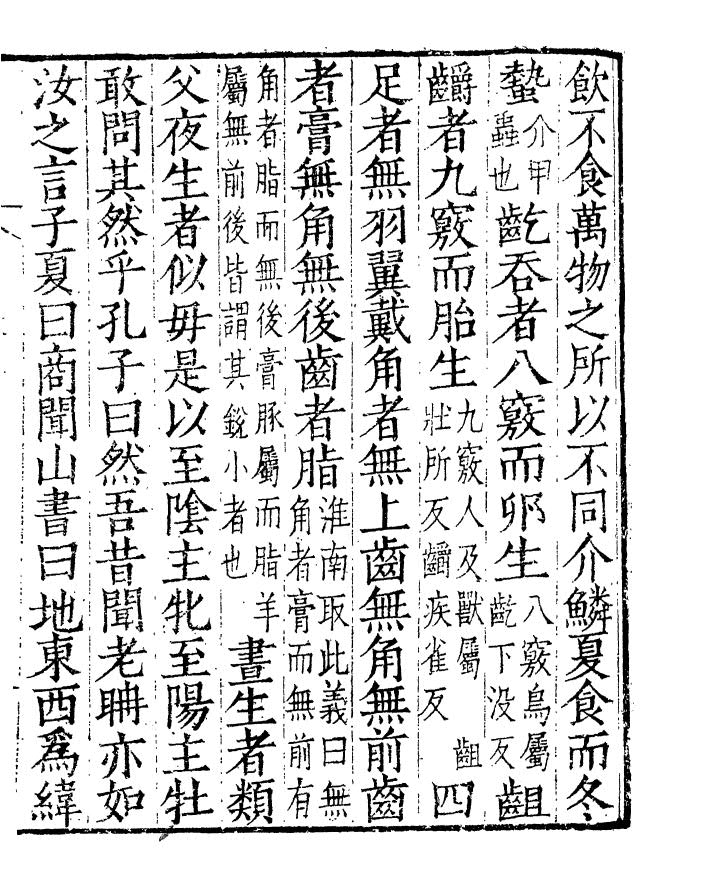 飲不食萬物之所以不同介鱗夏食而冬
蟄介甲蟲也齕吞者八竅而卵生八竅鳥屬齕下没反齟
嚼者九竅而胎生九竅人及獸屬 齟壯所反嚼疾雀反四
足者無羽翼戴角者無上齒無角無前齒
者膏無角無後齒者脂淮南取此義曰無角者膏而無前有
角者脂而無後膏豚屬而脂羊屬無前後皆謂其銳小者也晝生者類
父夜生者似毋是以至陰主牝至陽主牡
敢問其然乎孔子曰然吾昔聞老聃亦如
汝之言子夏曰商聞山書曰地東西爲緯